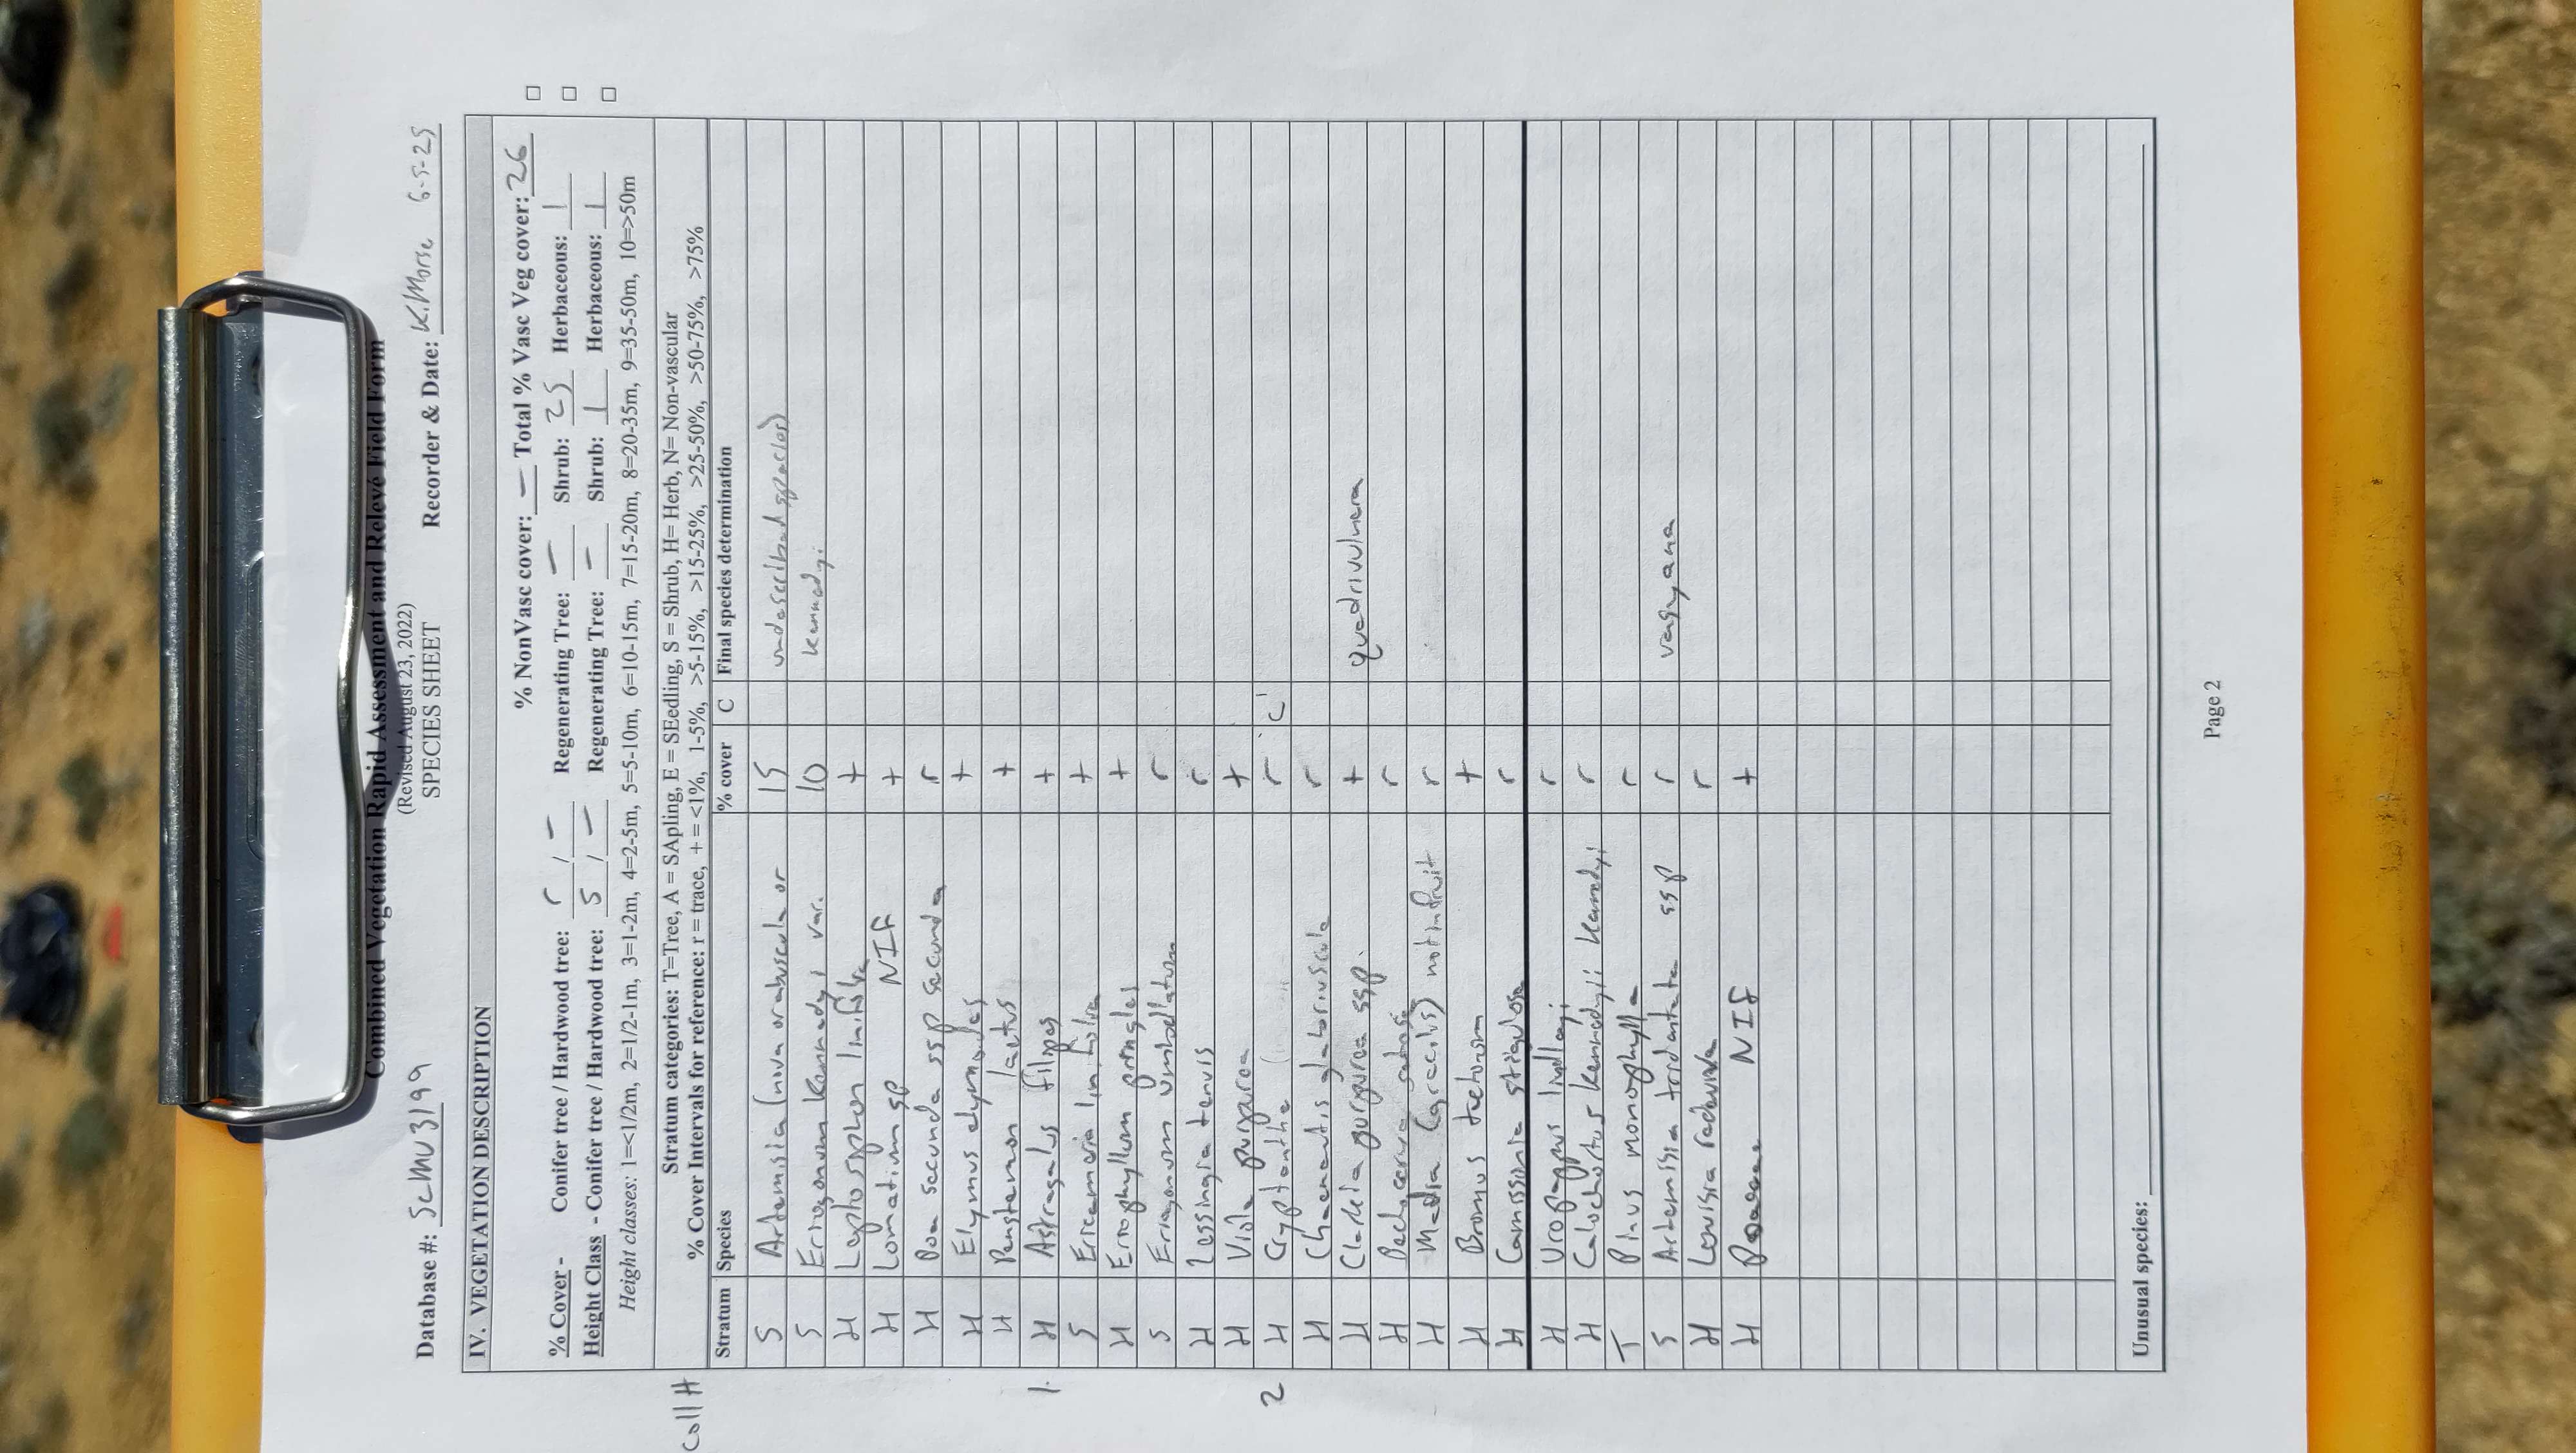 Combined Vegetation Rapid Assessment and Relevé Field Form
(Revised August 23, 2022)
Database #: SCMU3199 SPECIES SHEET Recorder & Date: K.Morse 6-5-25
IV. VEGETATION DESCRIPTION
% NonVasc cover: — Total % Vasc Veg cover: 26
% Cover - Conifer tree / Hardwood tree: r / — Regenerating Tree: — Shrub: 25 Herbaceous: 1
Height Class - Conifer tree / Hardwood tree: 5 / — Regenerating Tree: — Shrub: 1 Herbaceous: 1
Height classes: 1=<1/2m, 2=1/2-1m, 3=1-2m, 4=2-5m, 5=5-10m, 6=10-15m, 7=15-20m, 8=20-35m, 9=35-50m, 10=>50m
Stratum categories: T=Tree, A = SApling, E = SEedling, S = Shrub, H= Herb, N= Non-vascular
% Cover Intervals for reference: r = trace, + = <1%, 1-5%, >5-15%, >15-25%, >25-50%, >50-75%, >75%
Coll #
Stratum Species % cover C Final species determination
S Artemisia (nova or arbuscula or 15 undescribed species(los)
S Eriogonum kennedyi var. 10 kennedyi
H Leptosyphon linifolia +
H Lomatium sp NIF +
H Poa secunda ssp secunda r
H Elymus elymoides +
H Penstemon laetus +
1. H Astragalus filipes +
S Ericameria linifolia +
H Eriophyllum pringlei +
S Eriogonum umbellatum r
H Lessingia tenuis r
H Viola purpurea +
2 H Cryptantha r C
H Chaenactis glabriuscula r
H Clarkia purpurea ssp. + quadrivulnera
H Pectocarya setosa r
H Madia (gracilis) not in fruit r
H Bromus tectorum +
H Camissonia strigulosa r
H Uropappus lindleyi r
H Calochortus kennedyi kennedyi r
T Pinus monophylla r
S Artemisia tridentata ssp r vaseyana
H Lewisia rediviva r
H Poaceae NIF +
Unusual species:
Page 2